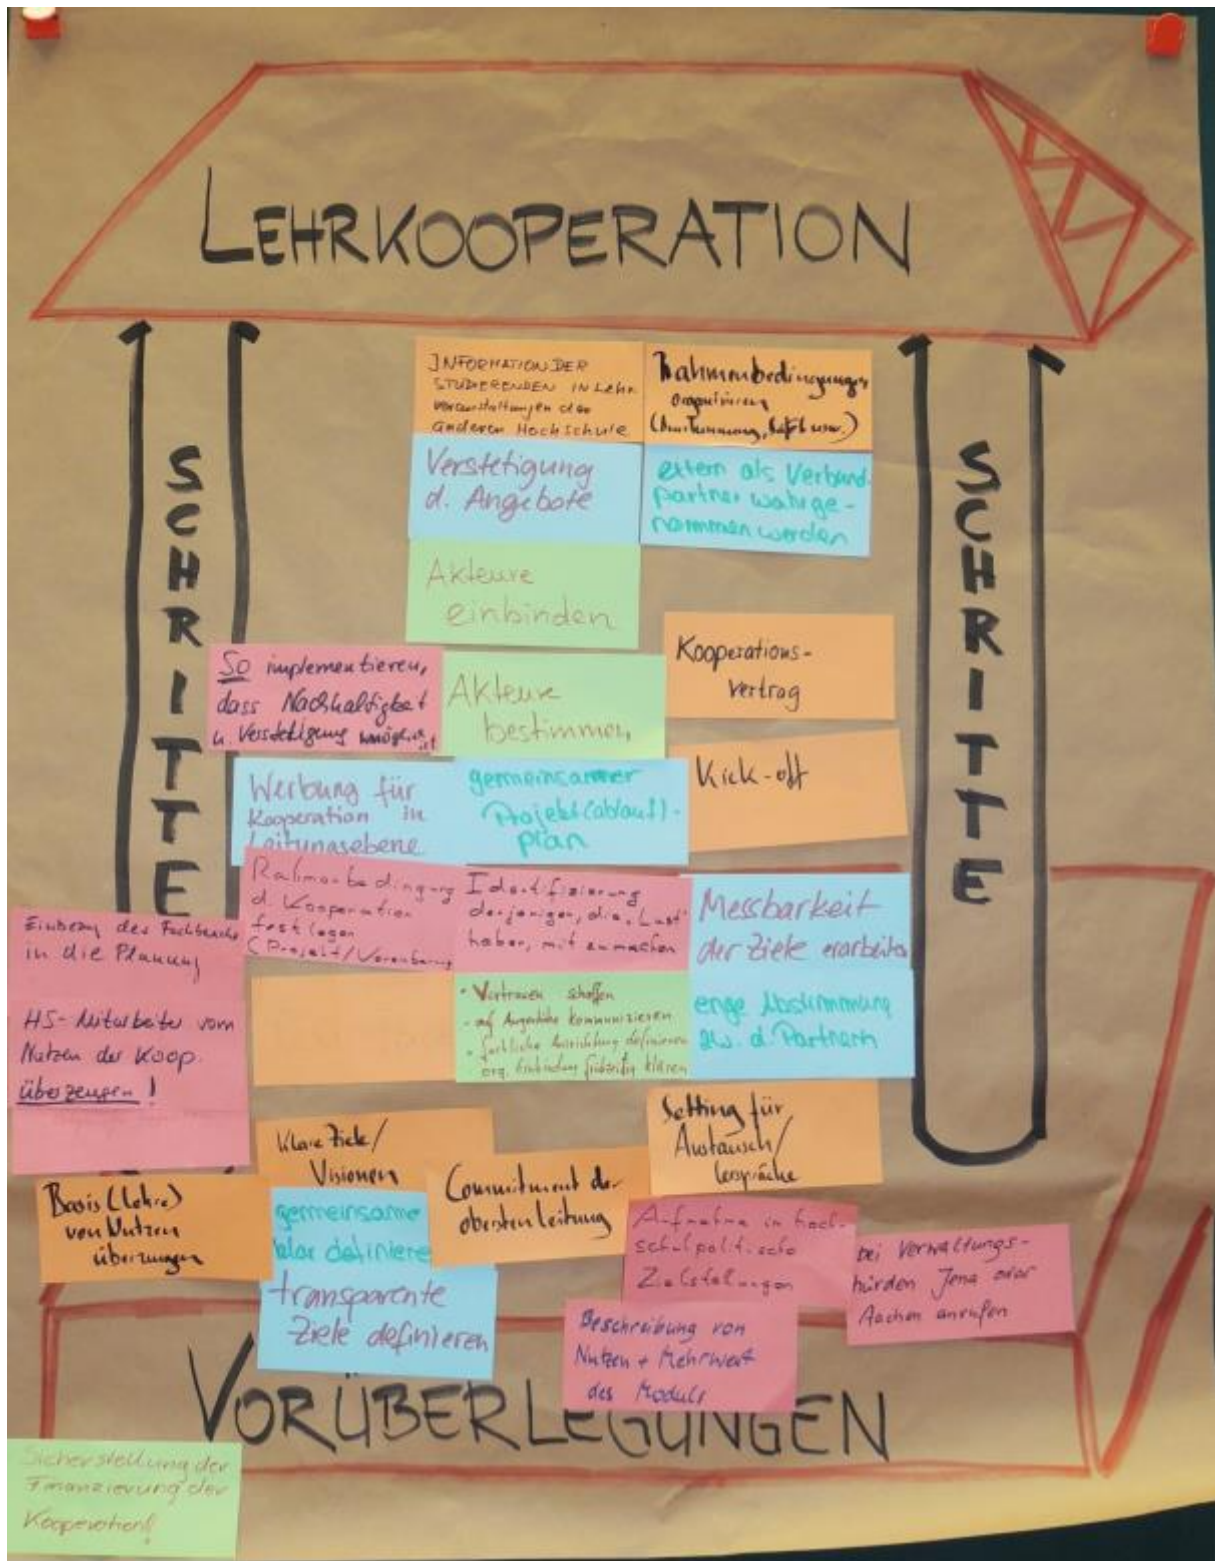 LEHRKOOPERATION
SCHRITTE
SCHRITTE
INFORMATION DER
STUDIERENDEN IN LEHR
veranstaltungen der
anderen Hochschule
Rahmenbedingungen
organisieren
(Anerkennung, usw.)
Verstetigung
d. Angebote
extern als Verbund
partner wahrge-
nommen werden
Akteure
einbinden
Kooperations-
vertrag
So implementieren,
dass Nachhaltigkeit
u. Verstetigung möglich ist
Akteure
bestimmen
Kick-off
Werbung für
Kooperation in
Leitungsebene
gemeinsamer
Projekt(ablauf)-
plan
Rahmenbedingung
d. Kooperation
festlegen
(Projekt/Vereinbarung
Identifizierung
derjenigen, die "Lust"
haben, mit zu machen
Messbarkeit
der Ziele erarbeiten
Einbezug des Fachbereichs
in die Planung
HS-Mitarbeiter vom
Nutzen der Koop.
überzeugen!
• Vertrauen schaffen
- auf Augenhöhe kommunizieren
• fachliche Ausrichtung definieren
org. Einbindung frühzeitig klären
enge Abstimmung
zw. d. Partnern
Klare Ziele/
Visionen
Setting für
Austausch/
Gespräche
Basis (Lehre)
von Nutzen
überzeugen
gemeinsame
klar definiere
Commitment der
obersten Leitung
transparente
Ziele definieren
Aufnahme in hoch-
schulpolitische
Zielstellungen
bei Verwaltungs-
hürden Jena oder
Aachen anrufen
Beschreibung von
Nutzen + Mehrwert
des Moduls
VORÜBERLEGUNGEN
Sicherstellung der
Finanzierung der
Kooperation!